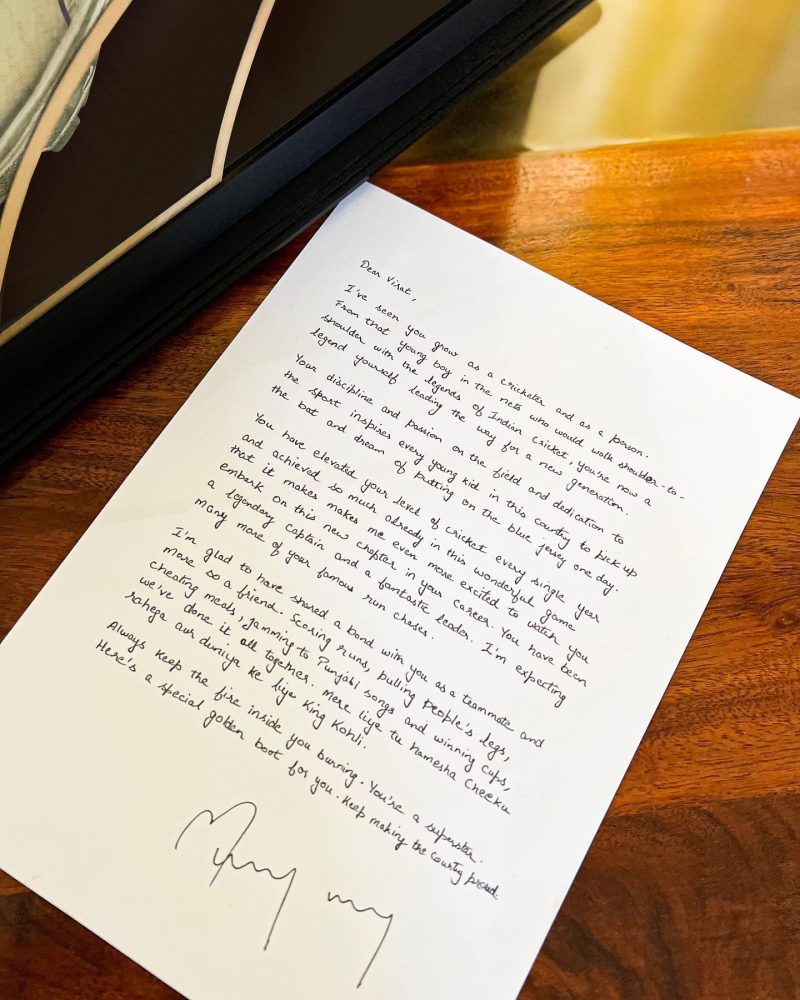 Dear Virat,
I've seen you grow as a cricketer and as a person.
From that young boy in the nets who would walk shoulder-to-
shoulder with the legends of Indian cricket, you're now a
legend yourself leading the way for a new generation.
Your discipline and passion on the field and dedication to
the sport inspires every young kid in this country to pick up
the bat and dream of putting on the blue jersey one day.
You have elevated your level of cricket every single year
and achieved so much already in this wonderful game
that it makes makes me even more excited to watch you
embark on this new chapter in your career. You have been
a legendary captain and a fantastic leader. I'm expecting
many more of your famous run chases.
I'm glad to have shared a bond with you as a teammate and
more so a friend. Scoring runs, pulling people's legs,
cheating meals, jamming to Punjabi songs and winning cups,
we've done it all together. Mere liye tu hamesha Cheeku
rahega aur duniya ke liye King Kohli.
Always keep the fire inside you burning. You're a superstar.
Here's a special golden boot for you. Keep making the country proud.